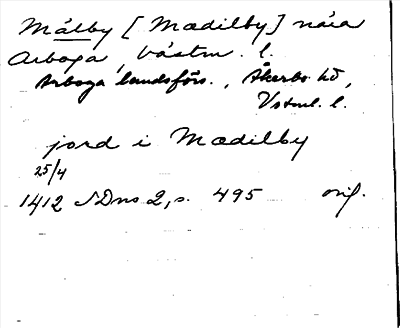 Målby [Mædilby] nära
Arboga, Västm. l.
Arboga landsförs., Åkerbo hd,
Vstml. l.
jord i Mædilby
25/4
1412 SDns 2, s. 495 orig.